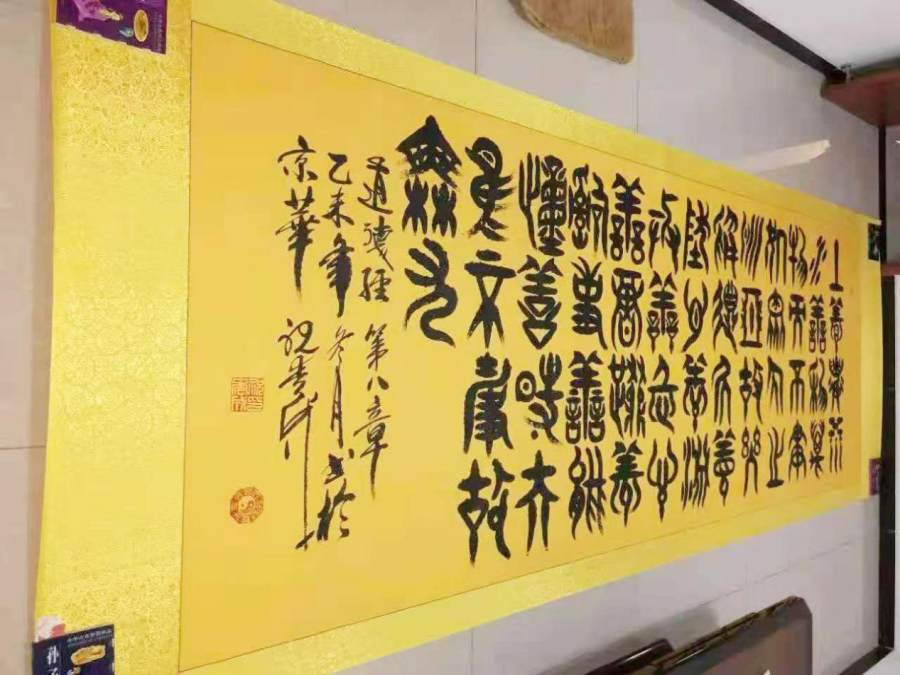 上善若水
水善利萬
物而不爭
處眾人之
所惡故幾
於道居善
地心善淵
與善仁言
善信政善
治事善能
動善時夫
唯不爭故
無尤
道德經 第八章
乙未年冬月書於
京華